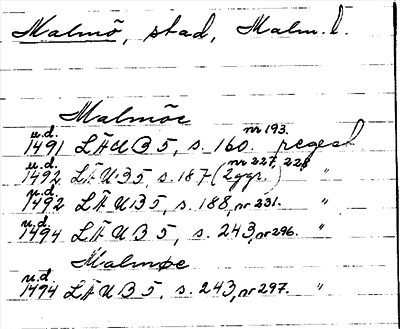 Malmö, stad, Malm. l.
Malmöe
u.d. 1491 LÄUB 5, s. 160. nr 193. regest
u.d. 1492 LÄUB 5, s. 187 (2 ggr.) nr 227, 228 "
u.d. 1492 LÄUB 5, s. 188, nr 231. "
u.d. 1494 LÄUB 5, s. 243, nr 296. "
Malmøe
u.d. 1494 LÄUB 5, s. 243, nr 297. "